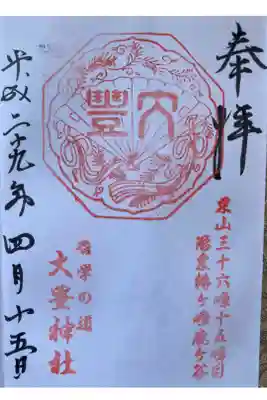 奉拝
東山三十六峰十五峰目
洛東椿ヶ峰鹿ヶ谷
大豐
哲学の道
大豊神社
平成二十九年四月十五日